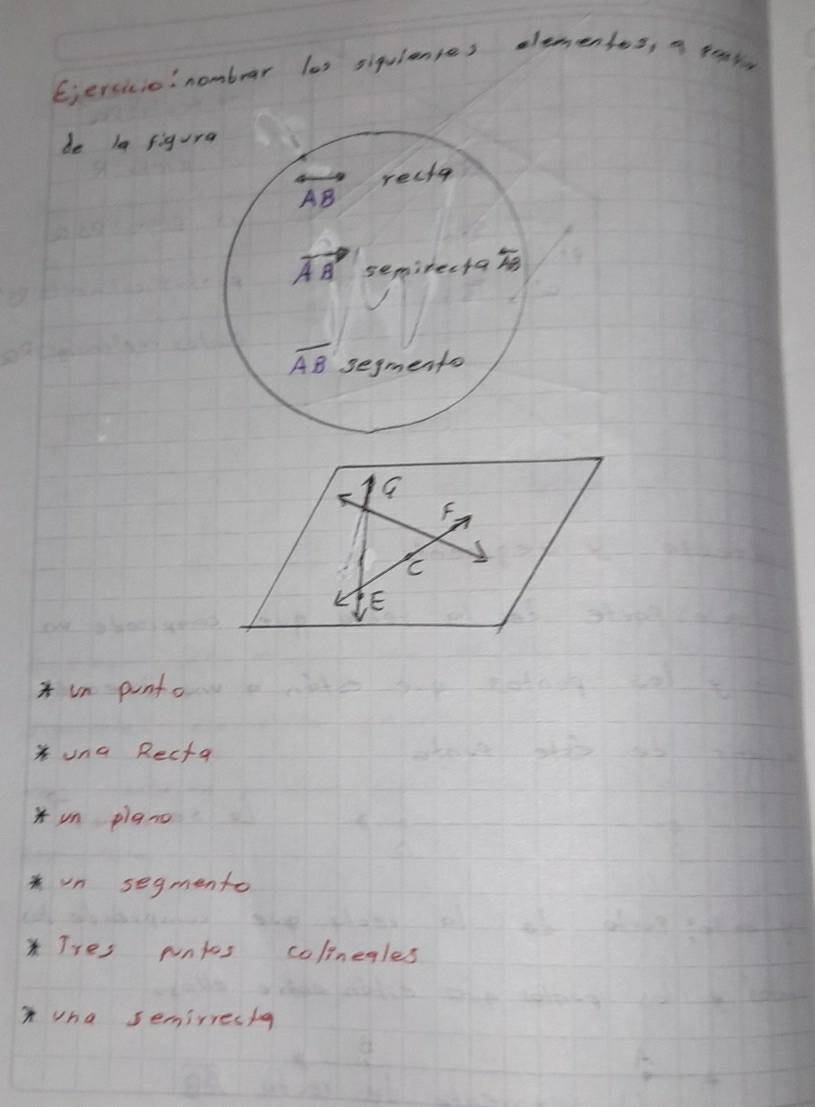 Ejercicio: nombrar los siguientes elementos, a partir
de la figura
AB recta
AB semirecta AB
AB segmento
G
F
C
E
* un punto
* una Recta
* un plano
* un segmento
* Tres puntos colineales
* una semirrecta